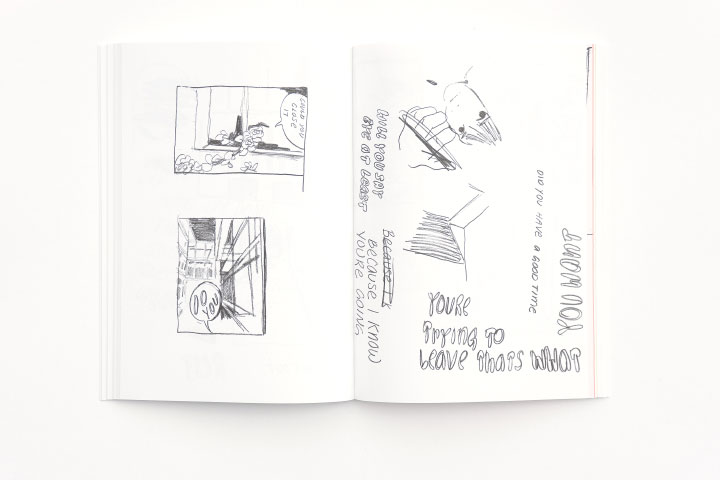 COULD YOU
CLOSE
IT
DO
YOU
WILL YOU SAY
BYE AT LEAST
Because I K
BECAUSE I KNOW
YOU'RE GOING
DID YOU HAVE A GOOD TIME
YOU'RE
TRYING TO
LEAVE THATS WHAT
YOU WANT